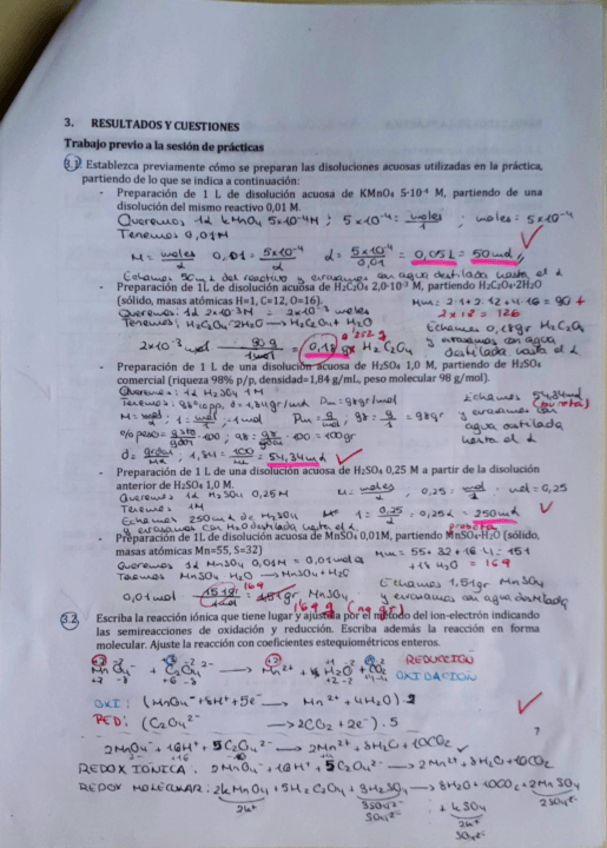 3. RESULTADOS Y CUESTIONES
Trabajo previo a la sesión de prácticas
3.1. Establezca previamente cómo se preparan las disoluciones acuosas utilizadas en la práctica,
partiendo de lo que se indica a continuación:
- Preparación de 1 L de disolución acuosa de KMnO4 5·10-4 M, partiendo de una
disolución del mismo reactivo 0,01 M.
Queremos 1L KMnO4 5x10-4M ; 5x10-4 = moles/1 ; moles = 5x10-4
Tenemos 0,01M
M = moles/L 0,01 = 5x10-4/L L = 5x10-4/0,01 = 0,05L = 50mL
Echamos 50mL del reactivo y enrasamos con agua destilada hasta el L
- Preparación de 1L de disolución acuosa de H2C2O4 2,0·10-3 M, partiendo H2C2O4·2H2O
(sólido, masas atómicas H=1, C=12, O=16). Mm = 2·1+2·12+4·16 = 90 +
Queremos: 1L 2x10-3M = 2x10-3 moles 2x18 = 126
Tenemos: H2C2O4·2H2O → H2C2O4 + H2O Echamos 0,18gr H2C2O4
0,252 g y enrasamos con agua
2x10-3 mol 90g/1mol = 0,18 gr H2C2O4 destilada hasta el L
- Preparación de 1 L de una disolución acuosa de H2SO4 1,0 M, partiendo de H2SO4
comercial (riqueza 98% p/p, densidad=1,84 g/mL, peso molecular 98 g/mol).
Queremos: 1L H2SO4 1M Echamos 54,34mL
Tenemos: 98%pp, d=1,84gr/mL Pm=98gr/mol (bureta)
M = mol/L ; 1 = mol/1 ; 1mol Pm = g/mol ; 98 = g/1 = 98gr y enrasamos con
%peso = gsto/gdon·100 ; 98 = 98/gdon·100 = 100gr agua destilada
d = gdon/mL ; 1,84 = 100/mL = 54,34mL hasta el L
- Preparación de 1 L de una disolución acuosa de H2SO4 0,25 M a partir de la disolución
anterior de H2SO4 1,0 M.
Queremos 1L H2SO4 0,25M M = moles/L ; 0,25 = mol/1 · mol = 0,25
Tenemos 1M
Echamos 250mL de H2SO4 M= 1 = 0,25/L = 0,25L = 250mL
y enrasamos con H2O destilada hasta el L. probeta
- Préparación de 1L de disolución acuosa de MnSO4 0,01M, partiendo MnSO4·H2O (sólido,
masas atómicas Mn=55, S=32) Mm = 55+32+16·4 = 151
Queremos 1L MnSO4 0,01M = 0,01 moles +18 H2O = 169
Tenemos MnSO4·H2O → MnSO4 + H2O Echamos 1,51gr MnSO4
0,01mol 151gr/1mol 169 = 1,51gr MnSO4 y enrasamos con agua destilada
1,69 g (no gr)
3.2. Escriba la reacción iónica que tiene lugar y ajústela por el método del ion-electrón indicando
las semireacciones de oxidación y reducción. Escriba además la reacción en forma
molecular. Ajuste la reacción con coeficientes estequiométricos enteros.
MnO4- + C2O4 2- → Mn2+ + H2O + CO2 REDUCCIÓN
OXIDACIÓN
OXI: (MnO4- + 8H+ + 5e- → Mn2+ + 4H2O)·2
RED: (C2O4 2- → 2CO2 + 2e-)·5
2MnO4- + 16H+ + 5C2O4 2- → 2Mn2+ + 8H2O + 10CO2
REDOX IÓNICA: 2MnO4- + 16H+ + 5C2O4 2- → 2Mn2+ + 8H2O + 10CO2
REDOX MOLECULAR: 2KMnO4 + 5H2C2O4 + 3H2SO4 → 8H2O + 10CO2 + 2MnSO4
2K+ 3SO4 2- + K2SO4 2SO4 2-
SO4 2- 2K+
SO4 2-